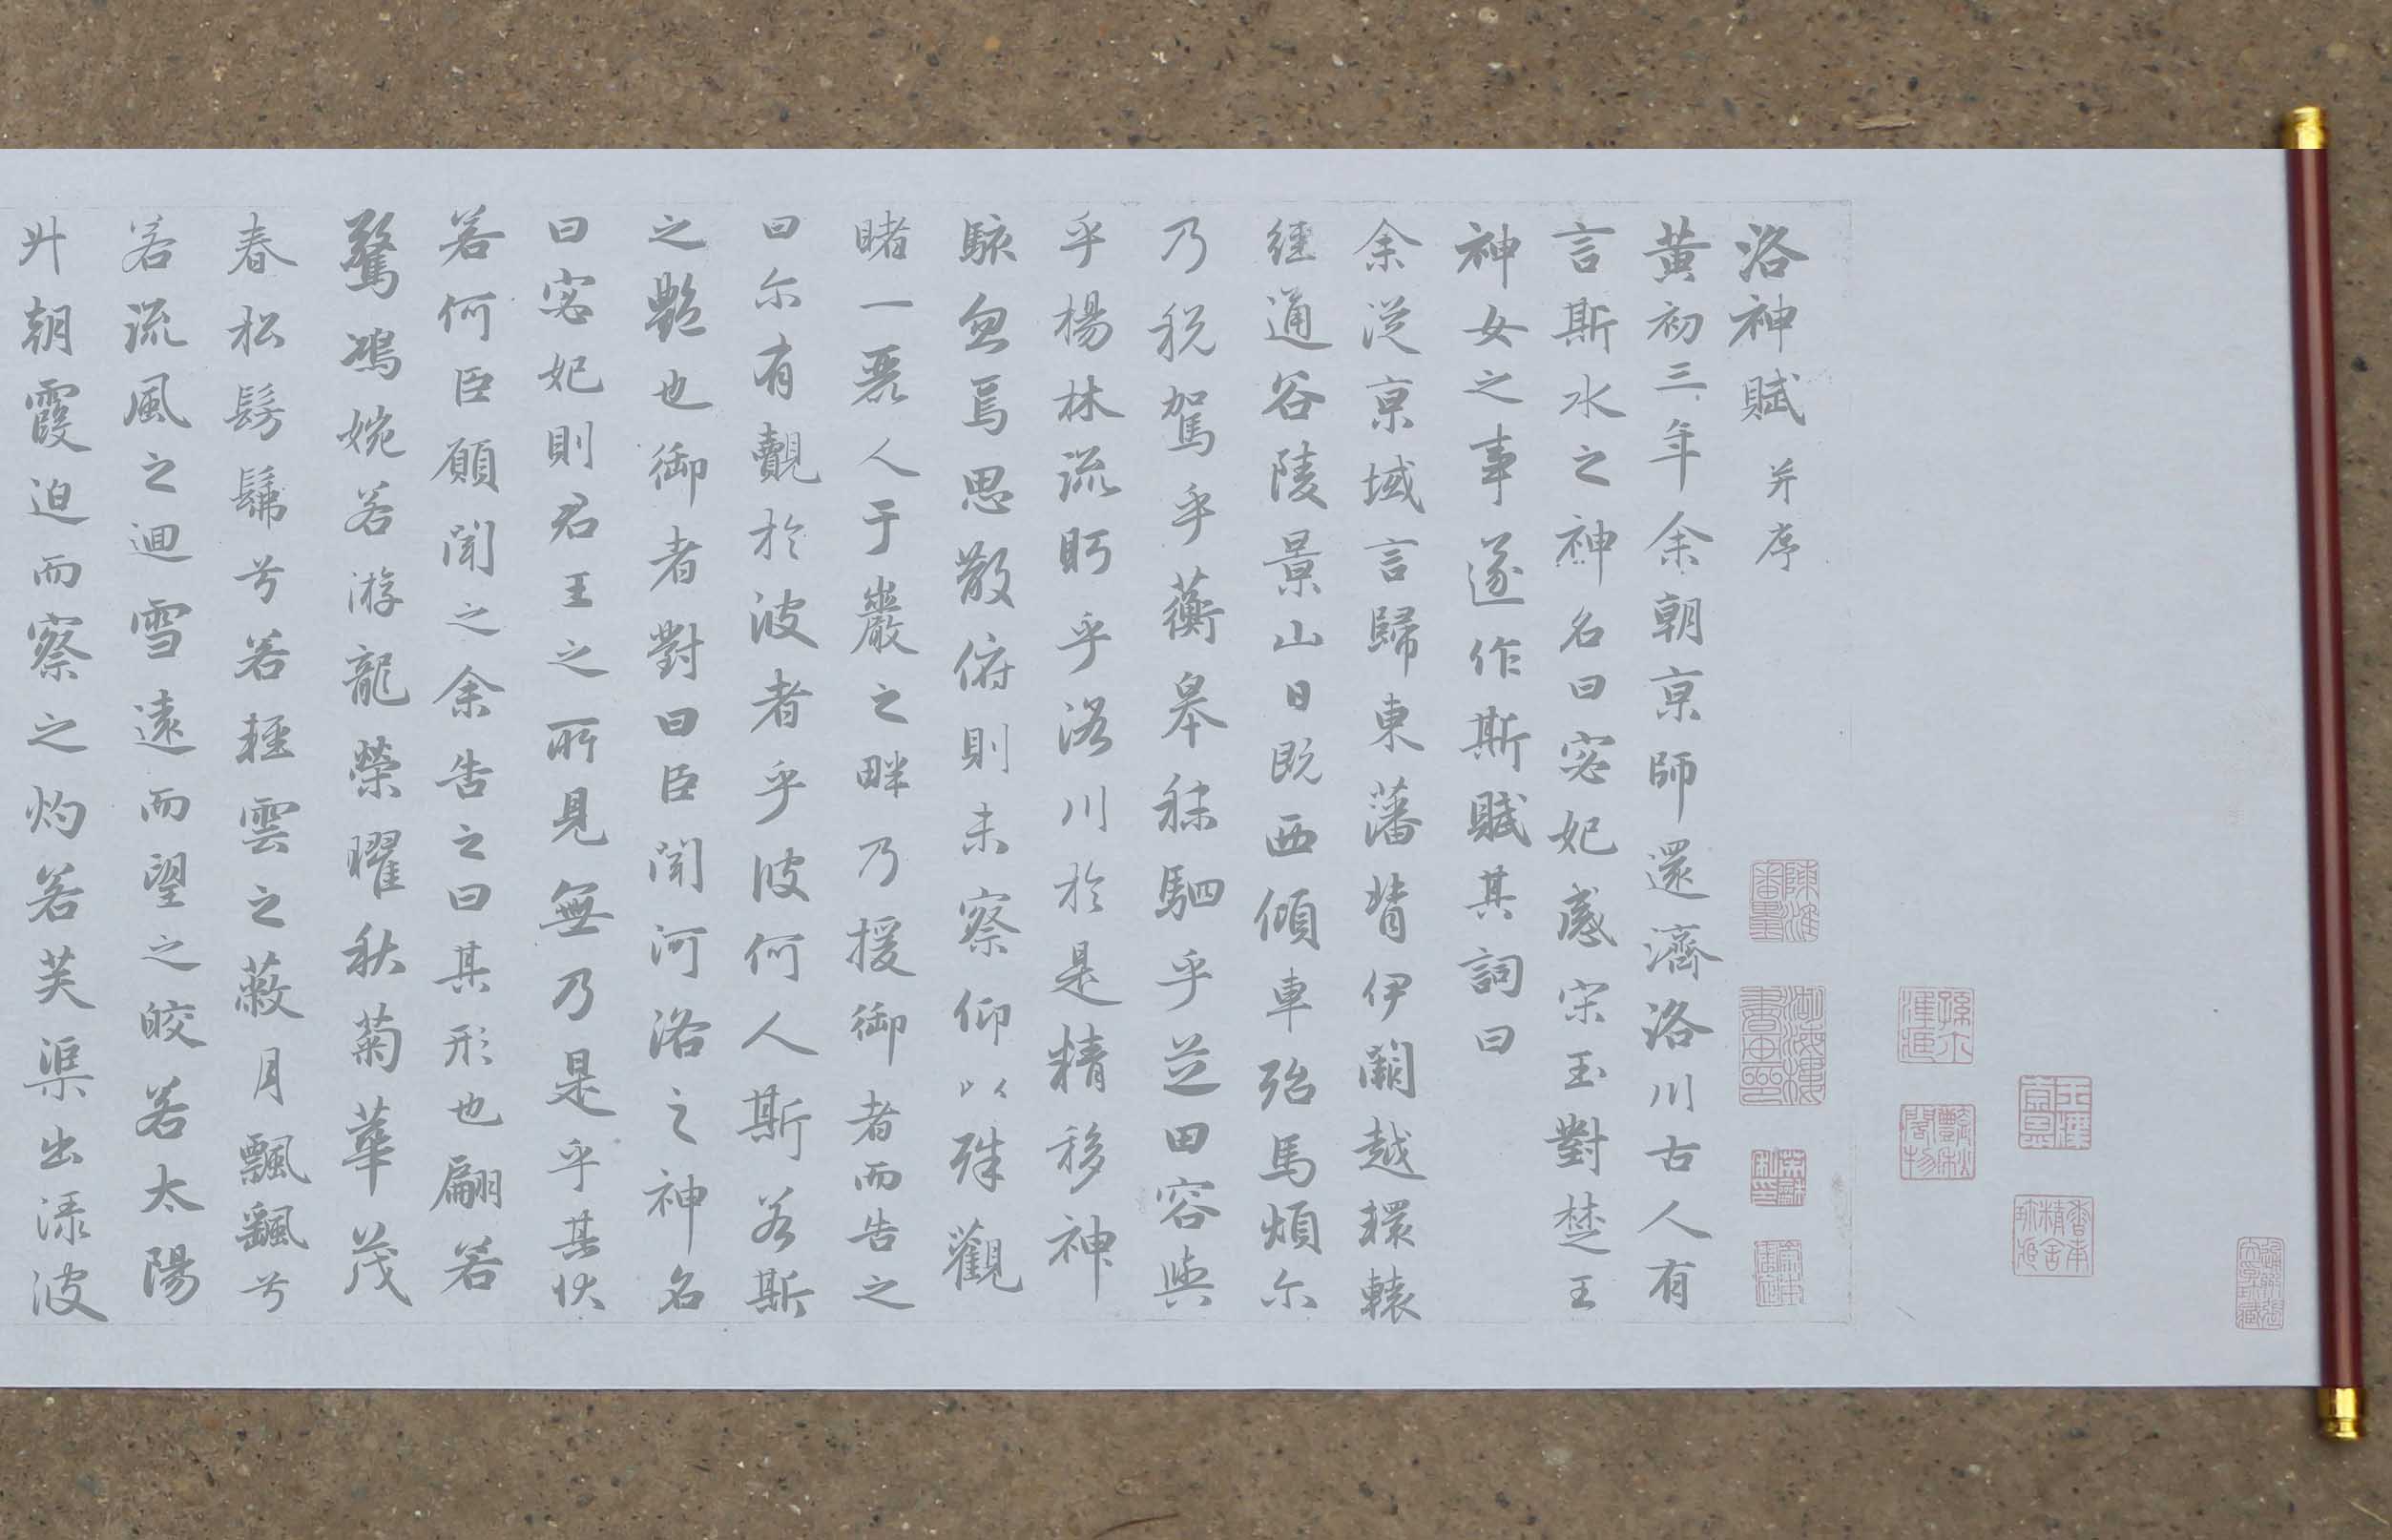 洛神賦 并序
黃初三年余朝京師還濟洛川古人有
言斯水之神名曰宓妃感宋玉對楚王
神女之事遂作斯賦其詞曰
余從京域言歸東藩背伊闕越轘轅
經通谷陵景山日既西傾車殆馬煩尔
乃稅駕乎蘅皋秣駟乎芝田容與
乎楊林流眄乎洛川於是精移神
駭忽焉思散俯則未察仰以殊觀
睹一麗人于巖之畔乃援御者而告之
曰尔有覿於彼者乎彼何人斯若斯
之豔也御者對曰臣聞河洛之神名
曰宓妃則君王之所見無乃是乎其狀
若何臣願聞之余告之曰其形也翩若
驚鴻婉若游龍榮曜秋菊華茂
春松髣髴兮若輕雲之蔽月飄颻兮
若流風之迴雪遠而望之皎若太陽
升朝霞迫而察之灼若芙蕖出淥波